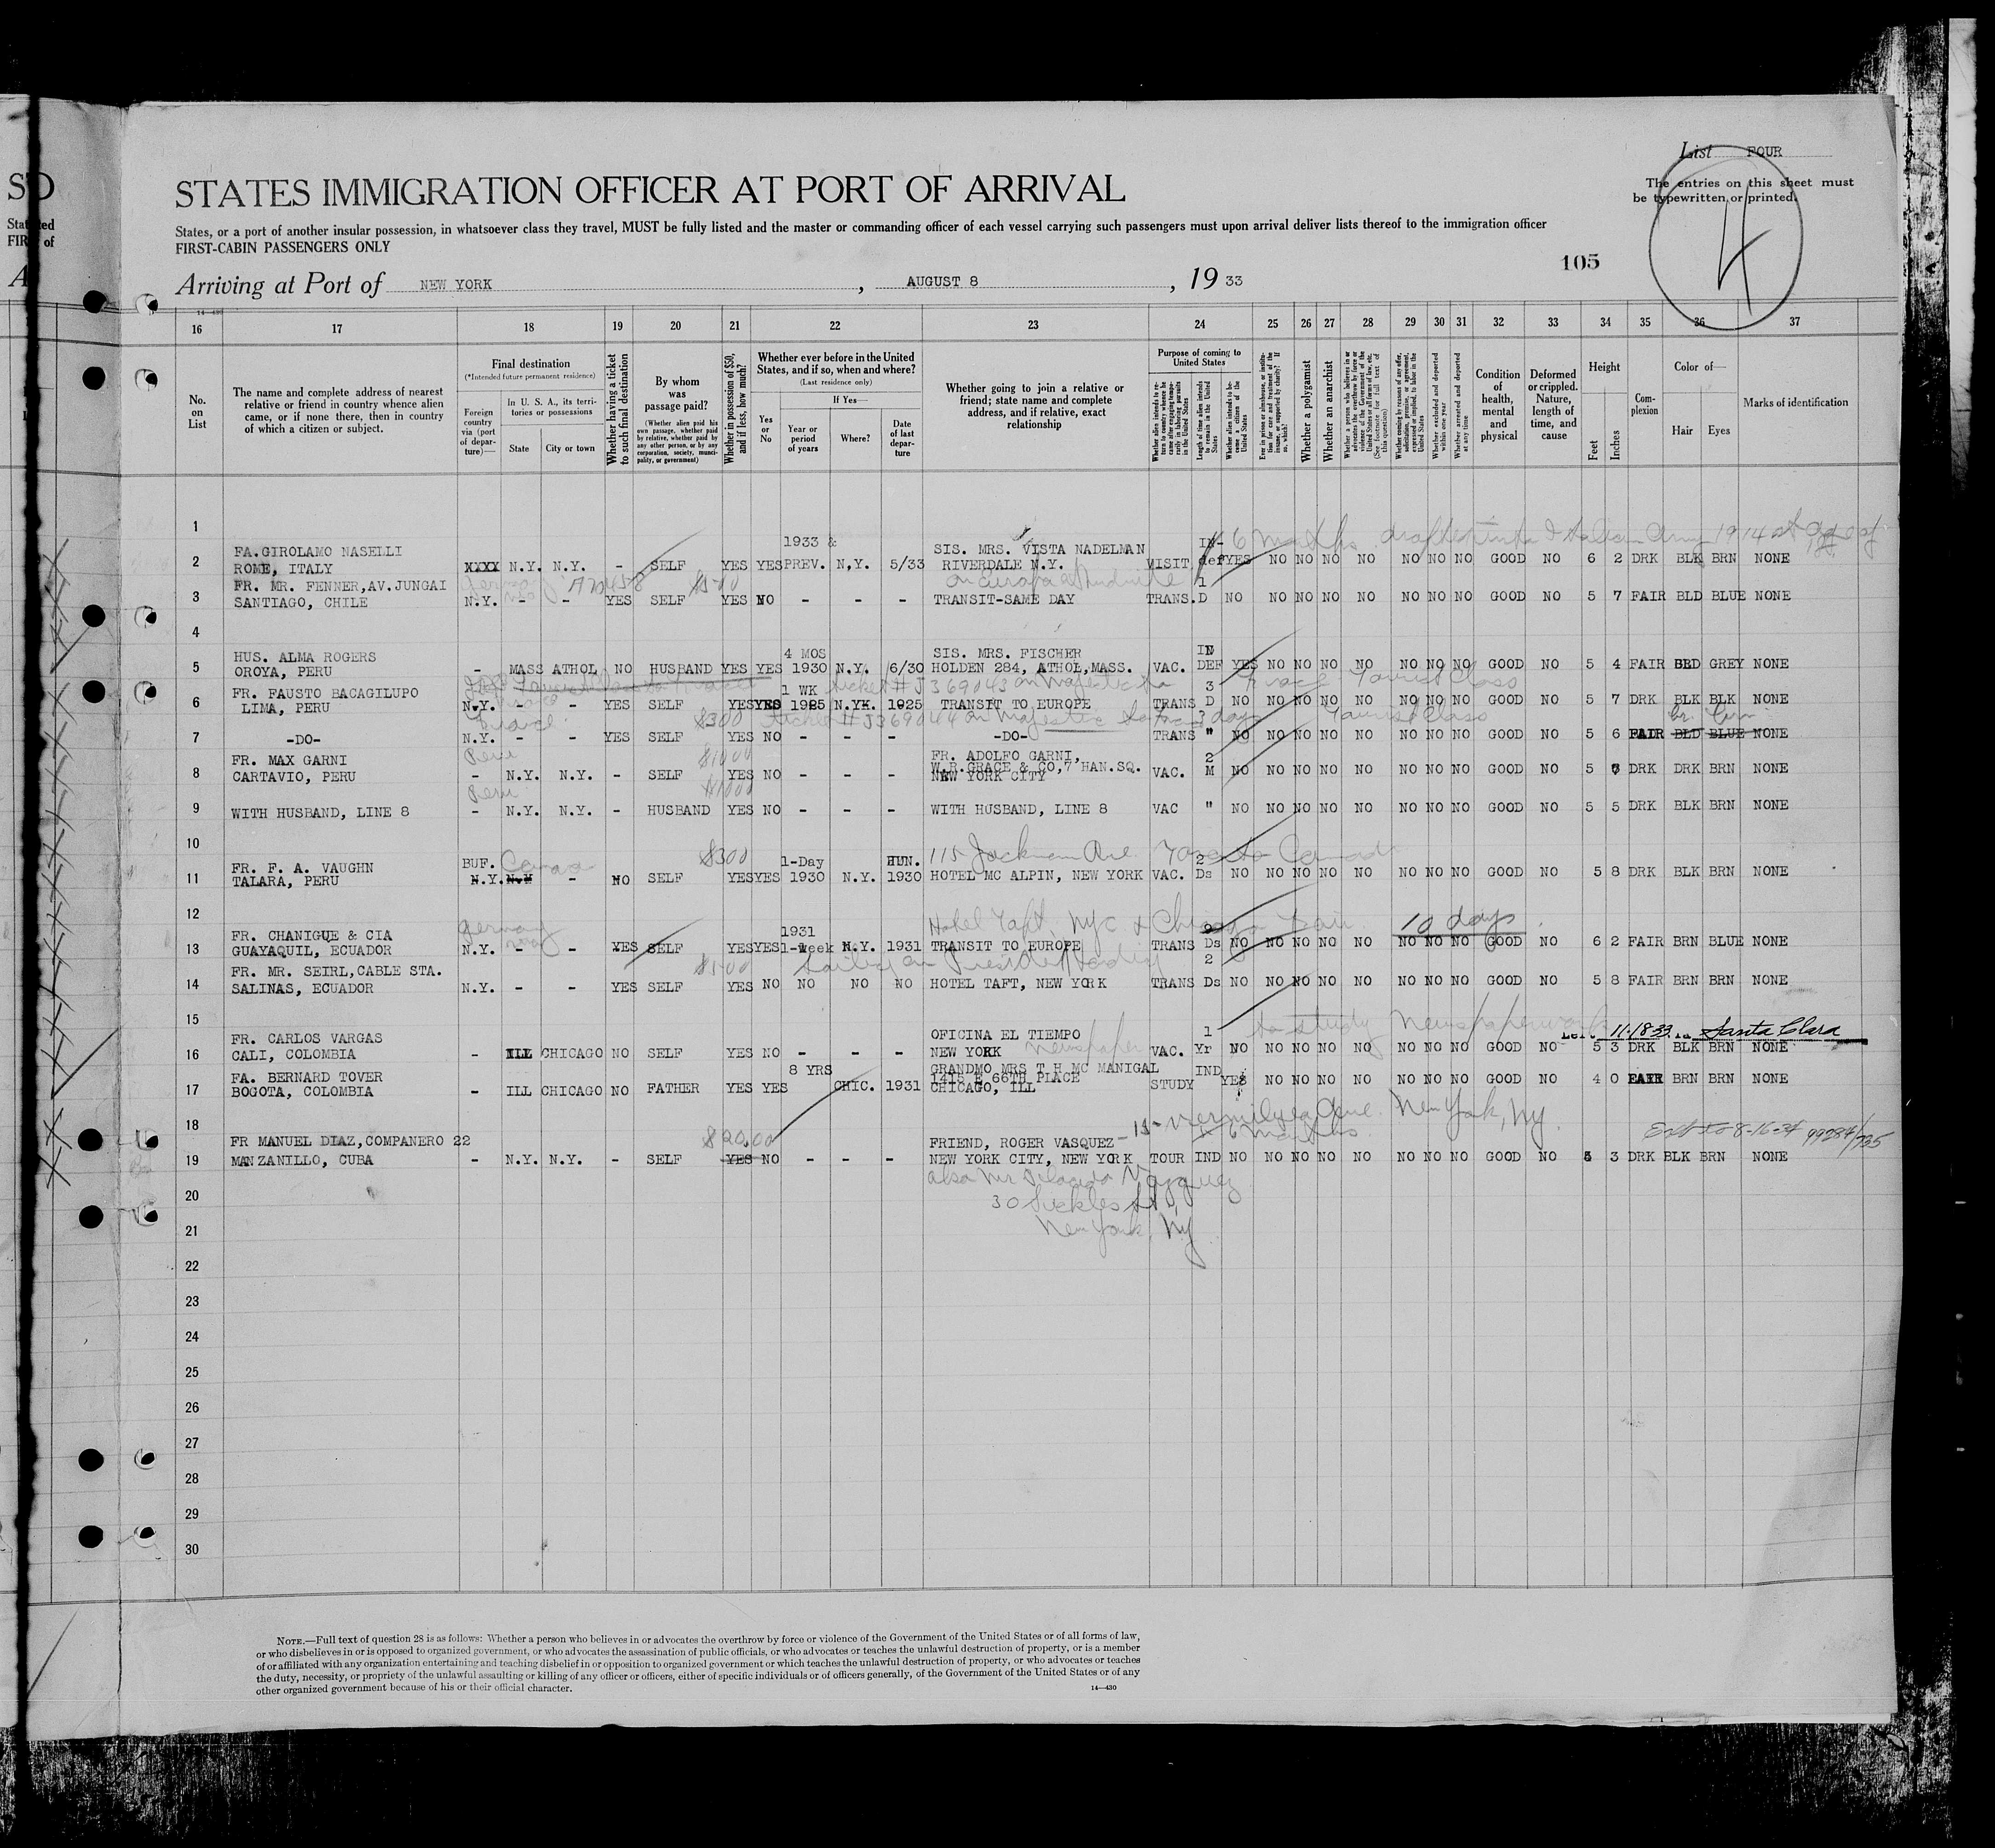 List FOUR
STATES IMMIGRATION OFFICER AT PORT OF ARRIVAL
The entries on this sheet must
be typewritten or printed.
4
States, or a port of another insular possession, in whatsoever class they travel, MUST be fully listed and the master or commanding officer of each vessel carrying such passengers must upon arrival deliver lists thereof to the immigration officer
FIRST-CABIN PASSENGERS ONLY
105
Arriving at Port of NEW YORK, AUGUST 8, 19 33
16 17 18 19 20 21 22 23 24 25 26 27 28 29 30 31 32 33 34 35 36 37
No. on List
The name and complete address of nearest relative or friend in country whence alien came, or if none there, then in country of which a citizen or subject.
Final destination
(*Intended future permanent residence)
Foreign country via (port of departure)—
In U. S. A., its territories or possessions
State
City or town
Whether having a ticket to such final destination
By whom was passage paid?
(Whether alien paid his own passage, whether paid by relative, whether paid by any other person, or by any corporation, society, municipality, or government)
Whether in possession of $50, and if less, how much?
Whether ever before in the United States, and if so, when and where?
(Last residence only)
Yes or No
If Yes—
Year or period of years
Where?
Date of last departure
Whether going to join a relative or friend; state name and complete address, and if relative, exact relationship
Purpose of coming to United States
Length of time alien intends to remain in the United States
Whether alien intends to become a citizen of the United States
Whether a polygamist
Whether an anarchist
Whether excluded and deported within one year
Whether arrested and deported at any time
Condition of health, mental and physical
Deformed or crippled. Nature, length of time, and cause
Height
Feet
Inches
Complexion
Color of—
Hair
Eyes
Marks of identification
1
6 months
1933 &
2 FA.GIROLAMO NASELLI
ROME, ITALY XXXX N.Y. N.Y. - SELF YES YES PREV. N.Y. 5/33 SIS. MRS. VISTA NADELMAN
RIVERDALE N.Y. VISIT IN-def YES NO NO NO NO NO NO NO GOOD NO 6 2 DRK BLK BRN NONE
3 FR. MR. FENNER,AV.JUNGAI
SANTIAGO, CHILE N.Y. - - YES SELF YES NO - - - TRANSIT-SAME DAY TRANS. 1 D NO NO NO NO NO NO NO NO GOOD NO 5 7 FAIR BLD BLUE NONE
4
5 HUS. ALMA ROGERS
OROYA, PERU - MASS ATHOL NO HUSBAND YES YES 4 MOS 1930 N.Y. 6/30 SIS. MRS. FISCHER
HOLDEN 284, ATHOL,MASS. VAC. IN DEF YES NO NO NO NO NO NO NO GOOD NO 5 4 FAIR BLD GREY NONE
ticket # J369043 on Majestic
Tourist Class
6 FR. FAUSTO BACAGILUPO
LIMA, PERU N.Y. - - YES SELF YES YES 1 WK 1925 N.Y. 1925 TRANSIT TO EUROPE TRANS 3 D NO NO NO NO NO NO NO NO GOOD NO 5 7 DRK BLK BLK NONE
$300 ticket # J369044 on Majestic 3 days Tourist Class
7 -DO- N.Y. - - YES SELF YES NO - - - -DO- TRANS " NO NO NO NO NO NO NO NO GOOD NO 5 6 FAIR BLD BLUE NONE
Peru $1000
8 FR. MAX GARNI
CARTAVIO, PERU - N.Y. N.Y. - SELF YES NO - - - FR. ADOLFO GARNI,
W.R.GRACE & CO,7 HAN.SQ.
NEW YORK CITY VAC. 2 M NO NO NO NO NO NO NO NO GOOD NO 5 DRK DRK BRN NONE
Peru $1000
9 WITH HUSBAND, LINE 8 - N.Y. N.Y. - HUSBAND YES NO - - - WITH HUSBAND, LINE 8 VAC " NO NO NO NO NO NO NO NO GOOD NO 5 5 DRK BLK BRN NONE
10
Canada $300 115 Jackman Ave. Toronto Canada
11 FR. F. A. VAUGHN
TALARA, PERU BUF. N.Y. N.Y. - NO SELF YES YES 1-Day 1930 N.Y. 1930 HOTEL MC ALPIN, NEW YORK VAC. 2 Ds NO NO NO NO NO NO NO NO GOOD NO 5 8 DRK BLK BRN NONE
12
Germany Hotel Taft, NYC & Chicago Fair 10 days
13 FR. CHANIGUE & CIA
GUAYAQUIL, ECUADOR N.Y. - YES SELF YES YES 1931 1-week N.Y. 1931 TRANSIT TO EUROPE TRANS Ds NO NO NO NO NO NO NO NO GOOD NO 6 2 FAIR BRN BLUE NONE
$500
14 FR. MR. SEIRL,CABLE STA.
SALINAS, ECUADOR N.Y. - - YES SELF YES NO NO NO NO HOTEL TAFT, NEW YORK TRANS 2 Ds NO NO NO NO NO NO NO NO GOOD NO 5 8 FAIR BRN BRN NONE
15
to study newspaper 11-18-33 Santa Clara
16 FR. CARLOS VARGAS
CALI, COLOMBIA - ILL CHICAGO NO SELF YES NO - - - OFICINA EL TIEMPO
NEW YORK newspaper VAC. 1 Yr NO NO NO NO NO NO NO NO GOOD NO 5 3 DRK BLK BRN NONE
17 FA. BERNARD TOVER
BOGOTA, COLOMBIA - ILL CHICAGO NO FATHER YES YES 8 YRS CHIC. 1931 GRANDMO MRS T H MC MANIGAL
1415 E 66TH PLACE
CHICAGO, ILL STUDY IND YES NO NO NO NO NO NO NO GOOD NO 4 0 FAIR BRN BRN NONE
18
Vermilyea Ave. New York, NY
$20.00 6 months 8-16-34 99284/735
19 FR MANUEL DIAZ,COMPANERO 22
MANZANILLO, CUBA - N.Y. N.Y. - SELF YES NO - - - FRIEND, ROGER VASQUEZ
NEW YORK CITY, NEW YORK TOUR IND NO NO NO NO NO NO NO NO GOOD NO 5 3 DRK BLK BRN NONE
also Mr Vazquez
20
30 Sickles St,
21
New York, NY
22
23
24
25
26
27
28
29
30
NOTE.—Full text of question 28 is as follows: Whether a person who believes in or advocates the overthrow by force or violence of the Government of the United States or of all forms of law,
or who disbelieves in or is opposed to organized government, or who advocates the assassination of public officials, or who advocates or teaches the unlawful destruction of property, or is a member
of or affiliated with any organization entertaining and teaching disbelief in or opposition to organized government or which teaches the unlawful destruction of property, or who advocates or teaches
the duty, necessity, or propriety of the unlawful assaulting or killing of any officer or officers, either of specific individuals or of officers generally, of the Government of the United States or of any
other organized government because of his or their official character.
14—430